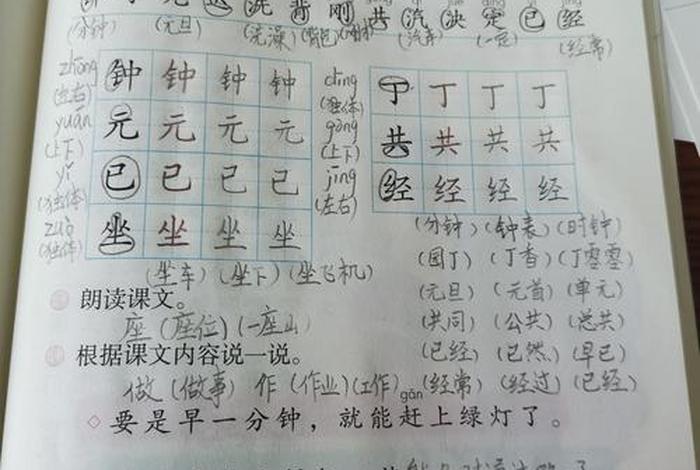 洗 背 刚 共 汽 决 定 已 经
(分钟) (元旦) (洗澡) (背包) (汽车) (一定) (经常)
zhōng 钟 钟 钟 钟 dīng 丁 丁 丁 丁
(左右) (独体)
yuán 元 元 元 元 gòng 共 共 共 共
(上下) (上下)
yǐ 已 已 已 已 jīng 经 经 经 经
(独体) (左右)
zuò 坐 坐 坐 坐
(独体)
(分钟) (钟表) (时钟)
(园丁) (丁香) (丁零零)
(坐车) (坐下) (坐飞机)
(元旦) (元首) (单元)
朗读课文。
(共同) (公共) (总共)
座 (座位) (一座山)
(已经) (已然) (早已)
根据课文内容说一说。
做 (做事) 作 (作业) (工作) (经常) (经过) (已经)
gǎn
要是早一分钟，就能赶上绿灯了。